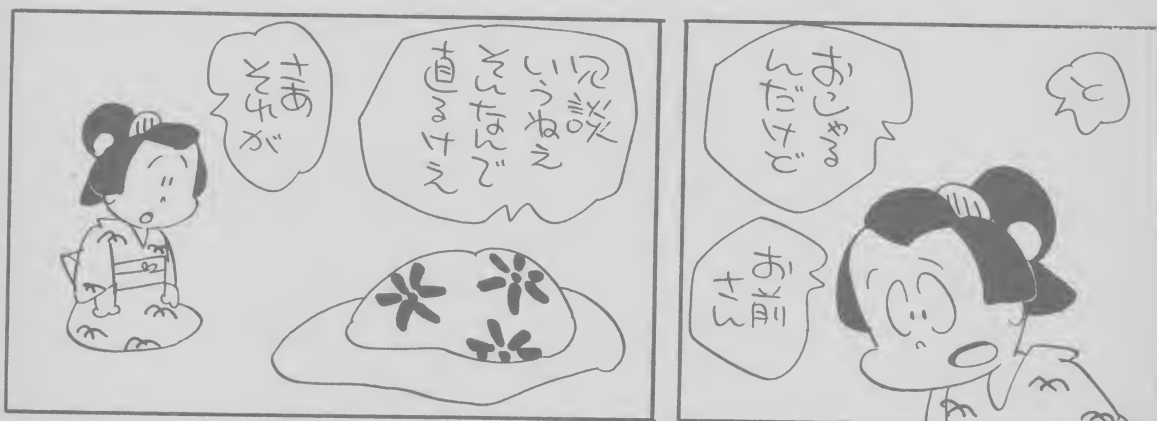 と
おっしゃる
んだけど
お前
さん
冗談
いうねえ
そんなんで
直るけえ
さあ
それが